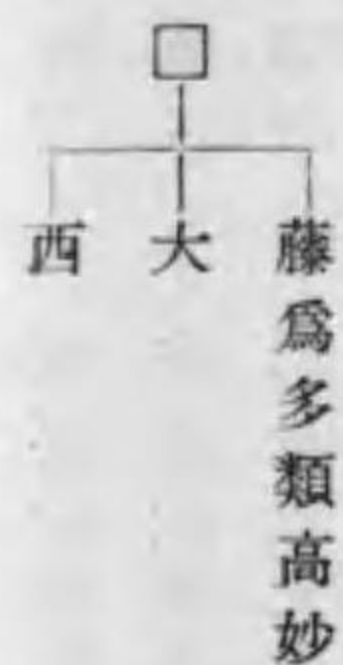 □
藤爲多類高妙
大
西